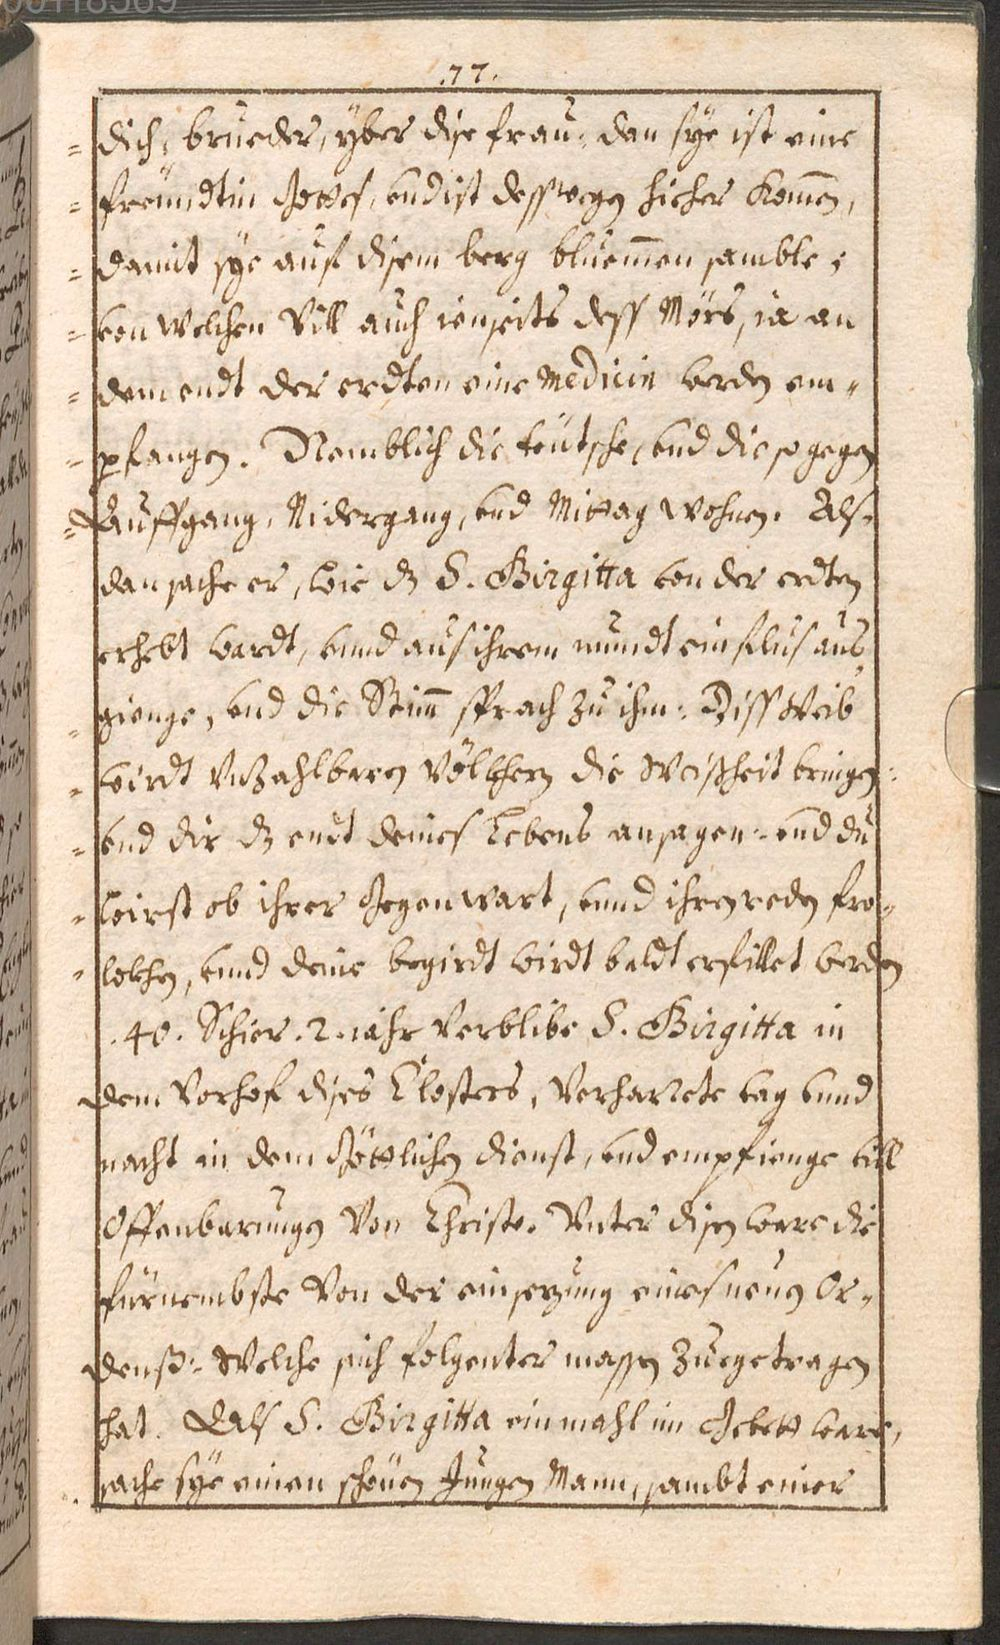 00118569
.77.
= dich, brueder, yber dise frau: dan sÿe ist eine
= freündtin Gottes, und ist desswegen hieher komen,
= damit sÿe auf disem berg bluemen samble;
= von welchen vill auch ienseits dess Mörs, ia an
= dem endt der erdten eine Medicin werden em-
= pfangen. Nemblich die teütsche, und die so gegen
= Auffgang, Nidergang, und Mittag wohnen. Als-
dan sache er, wie dz S. Birgitta von der erdten
erhebt wardt, vnnd aus ihrem mundt ein flus aus
= gienge, und die Stim sprach zu ihm: Diss Weib
= wirdt vnzahlbaren Völkhern die Weisheit bringen:
= und dir dz endt deines Lebens ansagen: und du
= wirst ob ihrer Gegenwart, vnnd ihren reden fro-
= lokhen, vnnd deine begirdt wirdt baldt erfillet werden
.40. Schier .2. iahr verblibe S. Birgitta in
dem Vorhof dises Closters, verharrete tag vnnd
nacht in dem Göttlichen dienst, und empfienge vill
Offenbarungen von Christo. Unter disen ware die
fürnembste von der einsezung eines neuen Or-
denß: welche sich folgenter massen zuegetragen
hat. Als S. Birgitta einmahl im Gebett ware,
sache sÿe einen schönen Jungen Mann, sambt einer